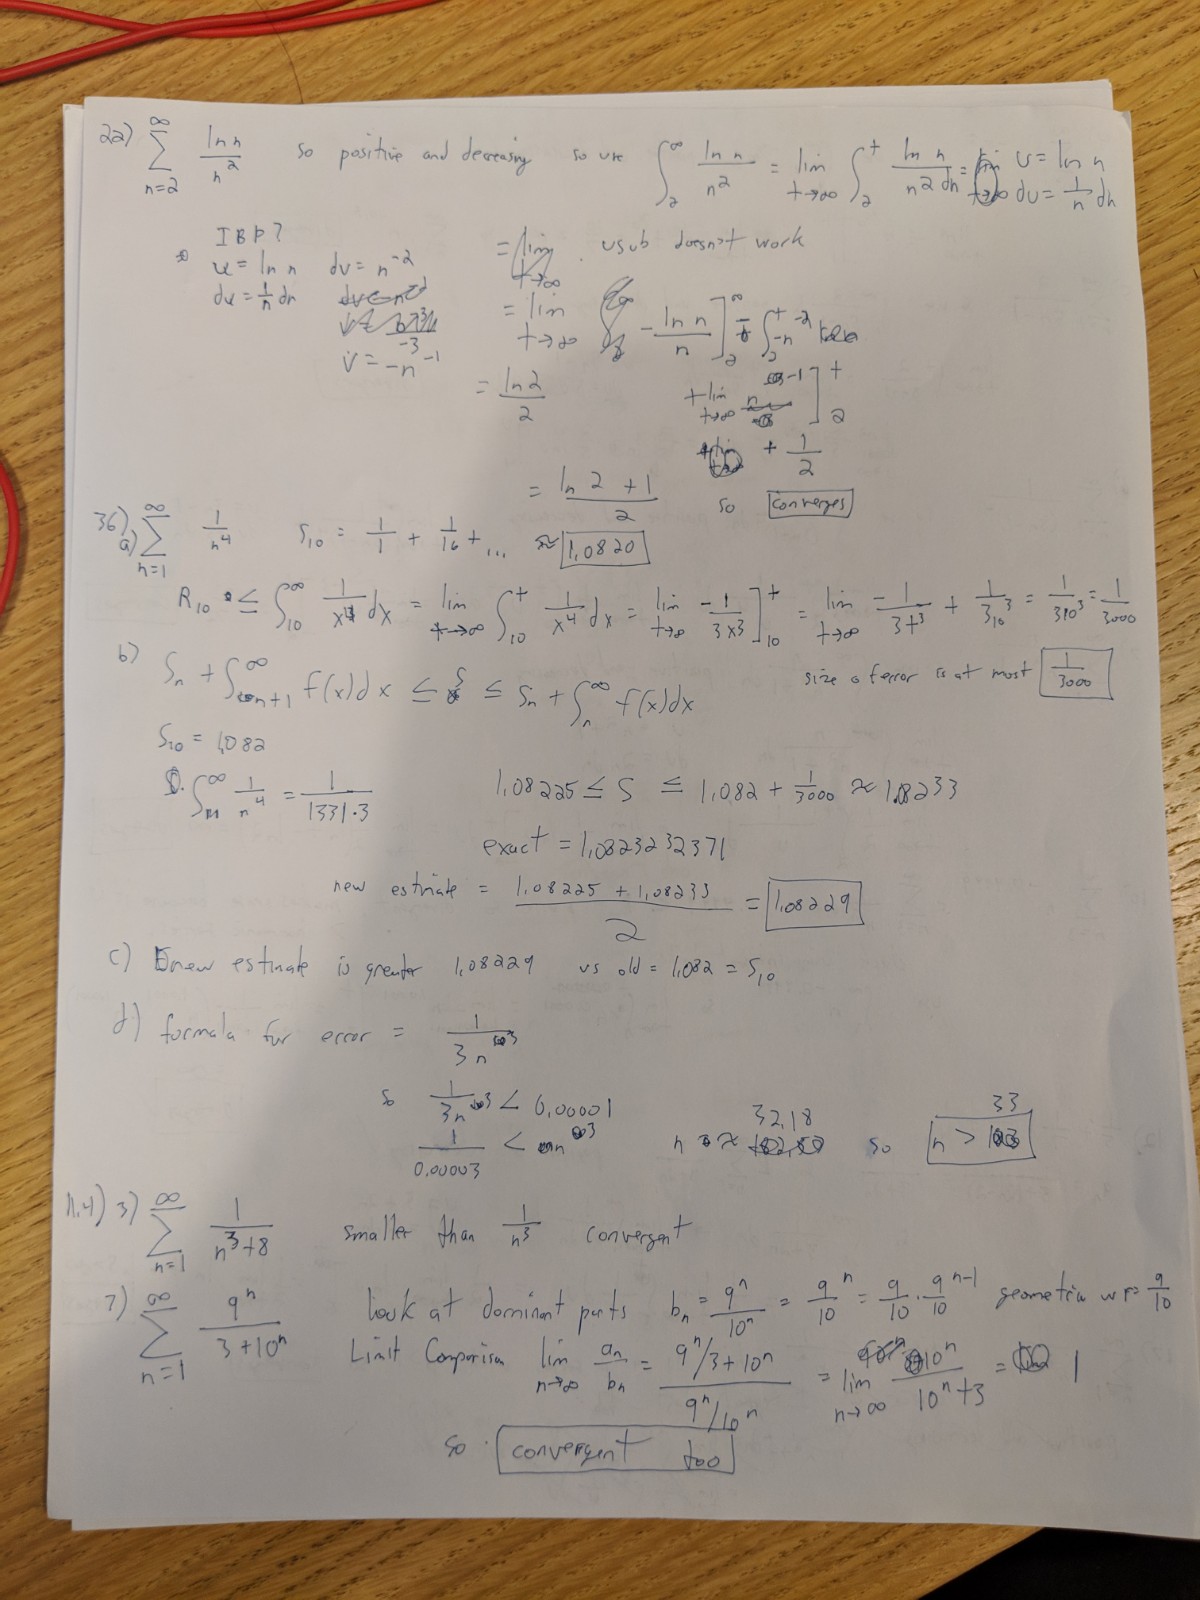 22) ∞∑n=2 ln n / n² so positive and decreasing so use ∫₂^∞ ln n / n² = lim t→∞ ∫₂^t ln n / n² dn = lim t→∞ u = ln n
du = 1/n dn
IBP? = lim t→∞ . usub doesn't work
u = ln n dv = n⁻²
du = 1/n dn = lim t→∞ - ln n / n ]₂^∞ - ∫₂^t -n⁻²
v = -n⁻¹
= ln 2 / 2 + lim t→∞ n⁻¹ ]₂^t
+ 1/2
= ln 2 + 1 / 2 so converges
36) a) ∞∑n=1 1/n⁴ S₁₀ = 1/1 + 1/16 + ... ≈ 1.0820
R₁₀ ≤ ∫₁₀^∞ 1/x⁴ dx = lim t→∞ ∫₁₀^t 1/x⁴ dx = lim t→∞ -1/3x³ ]₁₀^t = lim t→∞ -1/3t³ + 1/3₁₀³ = 1/310³ = 1/3000
size of error is at most 1/3000
b) Sₙ + ∫n+1^∞ f(x)dx ≤ S ≤ Sₙ + ∫ₙ^∞ f(x)dx
S₁₀ = 1,082
∫₁₁^∞ 1/n⁴ = 1/1331·3 1,08225 ≤ S ≤ 1,082 + 1/3000 ≈ 1,08233
exact = 1,0823232371
new estimate = 1,08225 + 1,08233 / 2 = 1,08229
c) new estimate is greater 1,08229 vs old = 1,082 = S₁₀
d) formula for error = 1/3n³
so 1/3n³ < 0,00001
1/0.00003 < n³ n ≈ 32,18 so n > 33
11.4) 3) ∞∑n=1 1/n³+8 smaller than 1/n³ convergent
7) ∞∑n=1 9ⁿ/3+10ⁿ look at dominant parts bₙ = 9ⁿ/10ⁿ = 9/10 ⁿ = 9/10 · 9/10 ⁿ⁻¹ geometric w r= 9/10
Limit Comparison lim n→∞ aₙ/bₙ = 9ⁿ/3+10ⁿ / 9ⁿ/10ⁿ = lim n→∞ 10ⁿ/10ⁿ+3 = 1
so convergent too